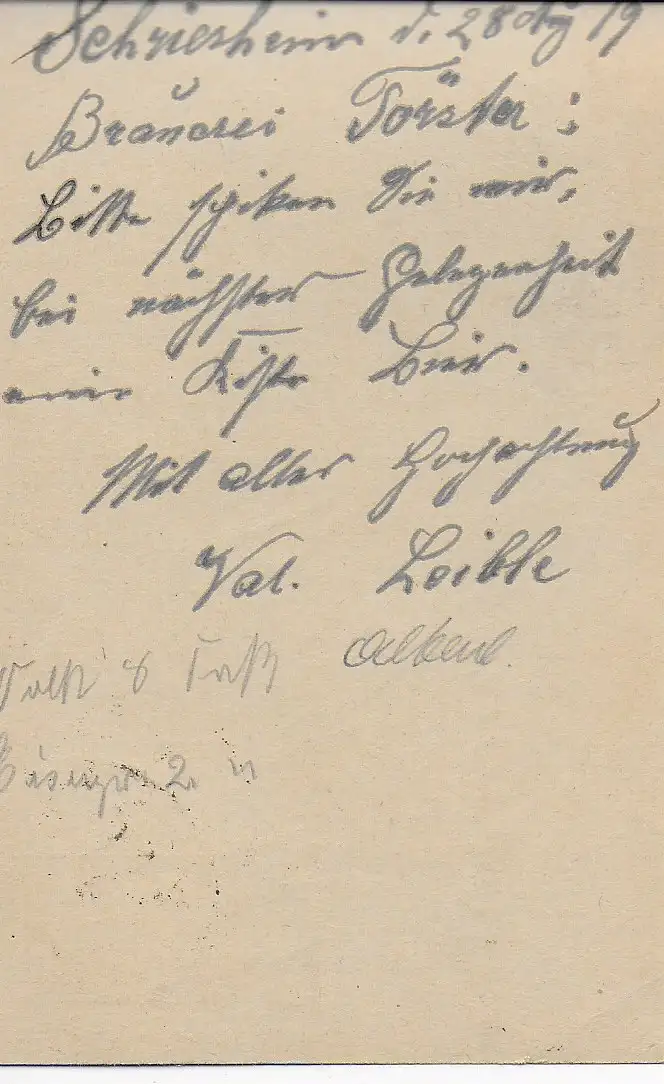 Schriesheim d. 28 Aug 19
Brauerei Förster:
Bitte schiken Sie mir,
bei nächster Gelegenheit
eine Kiste Bier.
Mit aller Hochachtung
Val. Loible
8 Faß
2 "